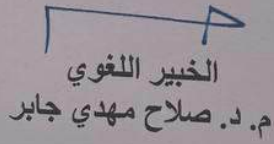 الخبير اللغوي
م. د. صلاح مهدي جابر